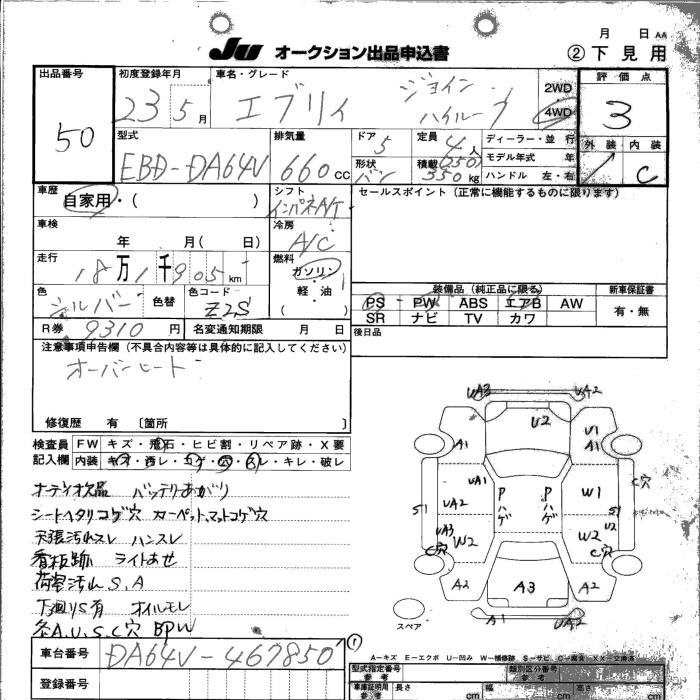 月 日 AA
Ju オークション出品申込書 ②下見用
出品番号 初度登録年月 車名・グレード 評価点
50 23 5月 エブリィ ジョイン ハイルーフ 2WD 4WD 3
型式 排気量 ドア 定員 ディーラー・並行 外装 内装
EBD-DA64V 660cc 5 4人 モデル年式 年 C
形状 バン 積載 (250) 350kg ハンドル 左・右
車歴 シフト セールスポイント (正常に機能するものに限ります)
自家用・( ) インパネA/T
車検 冷房
年 月( 日) A/C
走行 燃料
18万1千905km ガソリン・
色 色替 色コード 軽・油
シルバー Z2S ( )
装備品(純正品に限る) 新車保証書
PS PW ABS エアB AW 有・無
SR ナビ TV カワ
R券 9310円 名変通知期限 月 日 後日品
注意事項申告欄(不具合内容等は具体的に記入してください)
オーバーヒート
修復歴 有 〔箇所 〕
検査員 FW キズ・飛石・ヒビ割・リペア跡・X要
記入欄 内装 キズ・凹レ・コゲ・穴・スレ・キレ・破レ
オーディオ欠品 バッテリあがり
シートヘタリコゲ穴 カーペット,マットコゲ穴
天張汚れスレ ハンスレ
看板跡 ライトあせ
荷室汚れ S.A
下廻りS有 オイルモレ
各A.U.S.C穴 BPW
UA3 UA2
U2
A1 U1 A1
UA1 P ハゲ P ハゲ W1 C穴
S1 UA2 S1
UA3 W2 U2 W2
C穴 C穴
A2 A3 A2
スペア A1 UA2
車台番号 DA64V-467850 ①
A−キズ E−エクボ U−凹み W−補修跡 S−サビ C−腐食 XX−交換済
登録番号
型式指定番号 参考 類別区分番号 参考
車庫証明用 参考 長さ cm 幅 cm 高さ cm